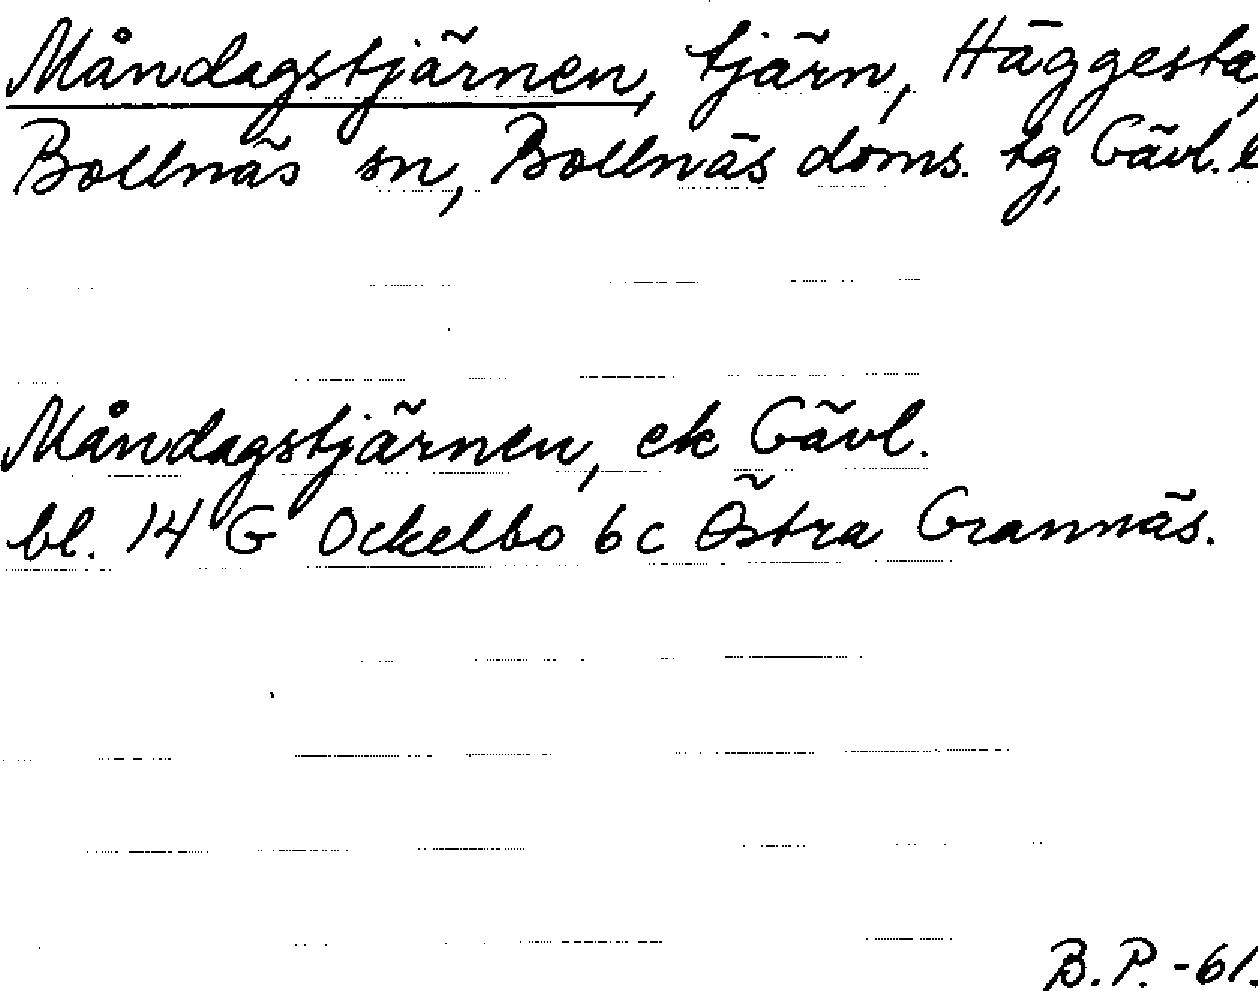 Måndagstjärnen, tjärn, Häggesta,
Bollnäs sn, Bollnäs doms. tg, Gävl. l
Måndagstjärnen, ek Gävl.
bl. 14 G Ockelbo 6c Östra Grannäs.
B.P. -61.